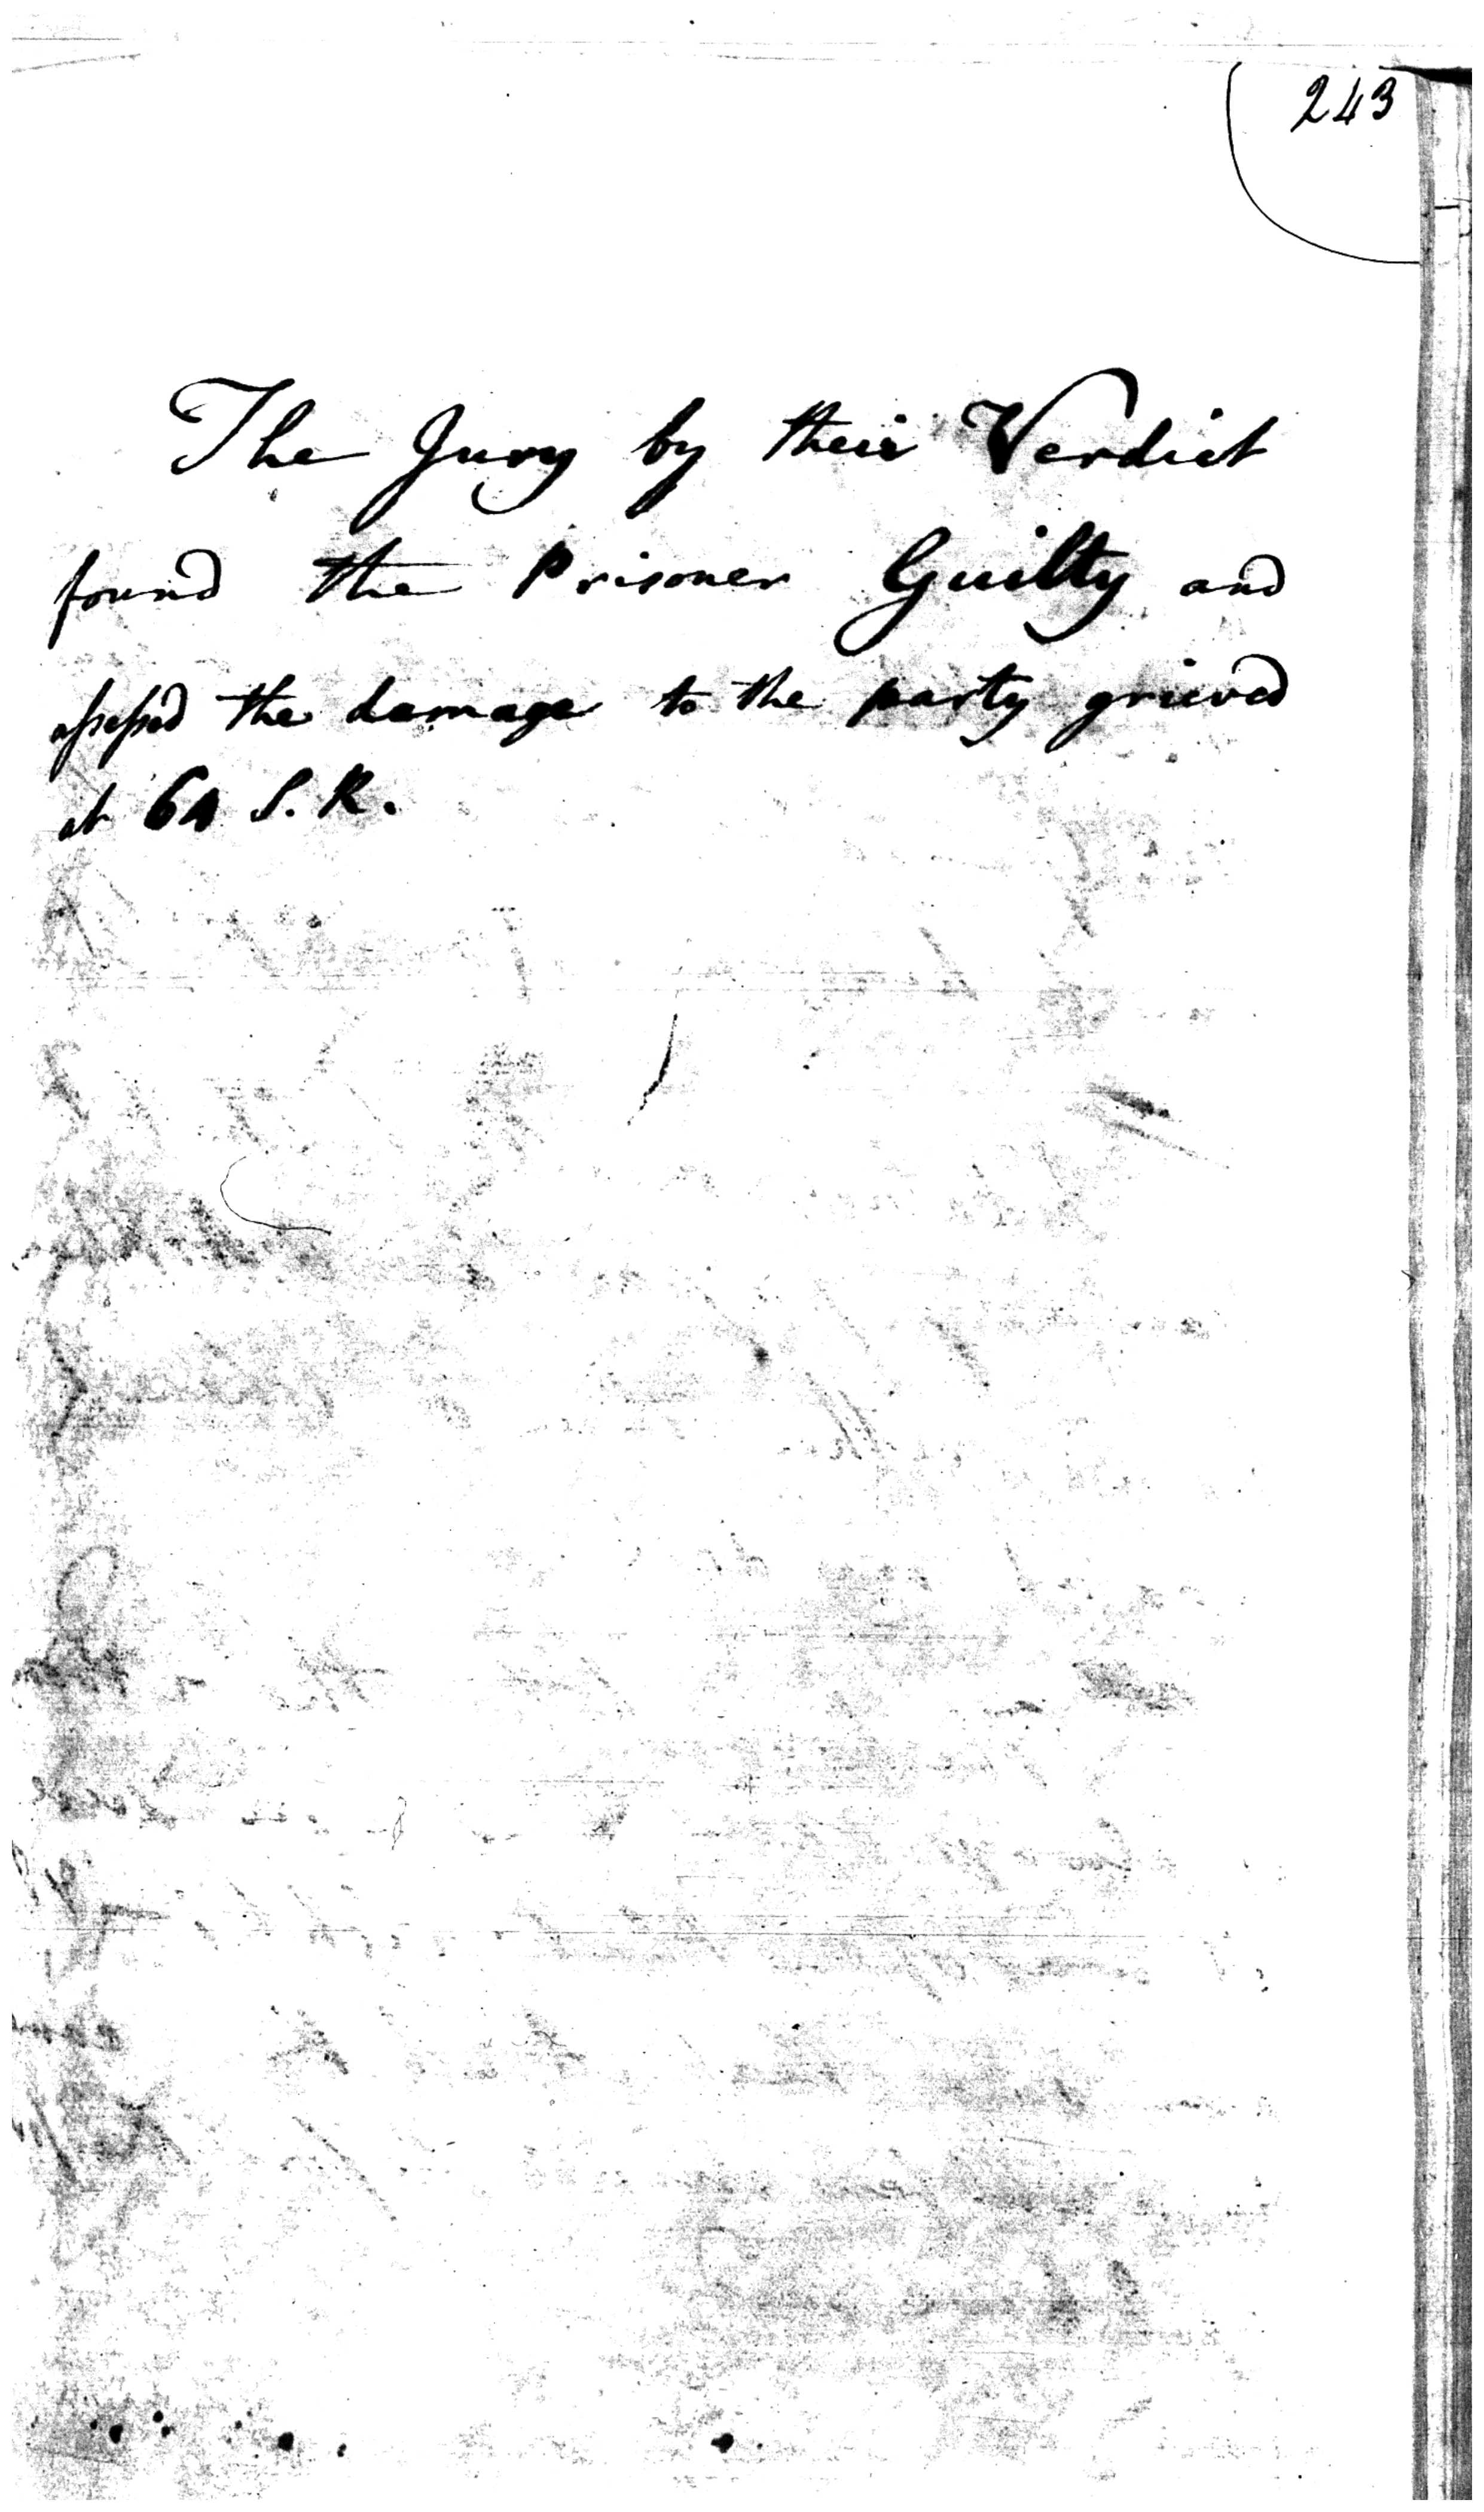 243
The Jury by their Verdict
found the Prisoner Guilty and
assessed the damage to the party grieved
at S. R.